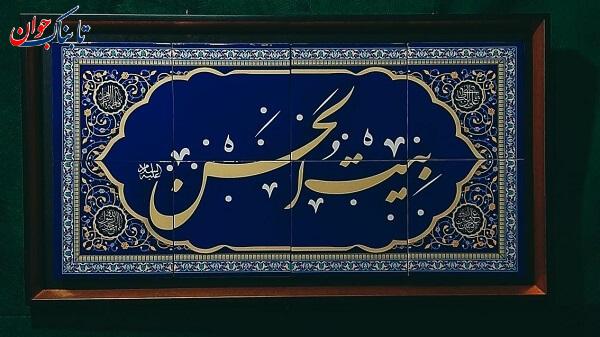 تابناک جوان
بیت الحسن
علیه السلام